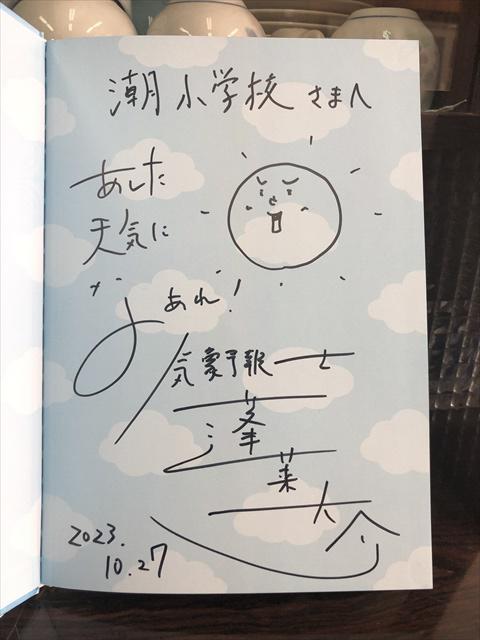 潮小学校 さまへ
あした
天気に
なあれ!
気象予報士
蓬莱大介
2023.
10.27